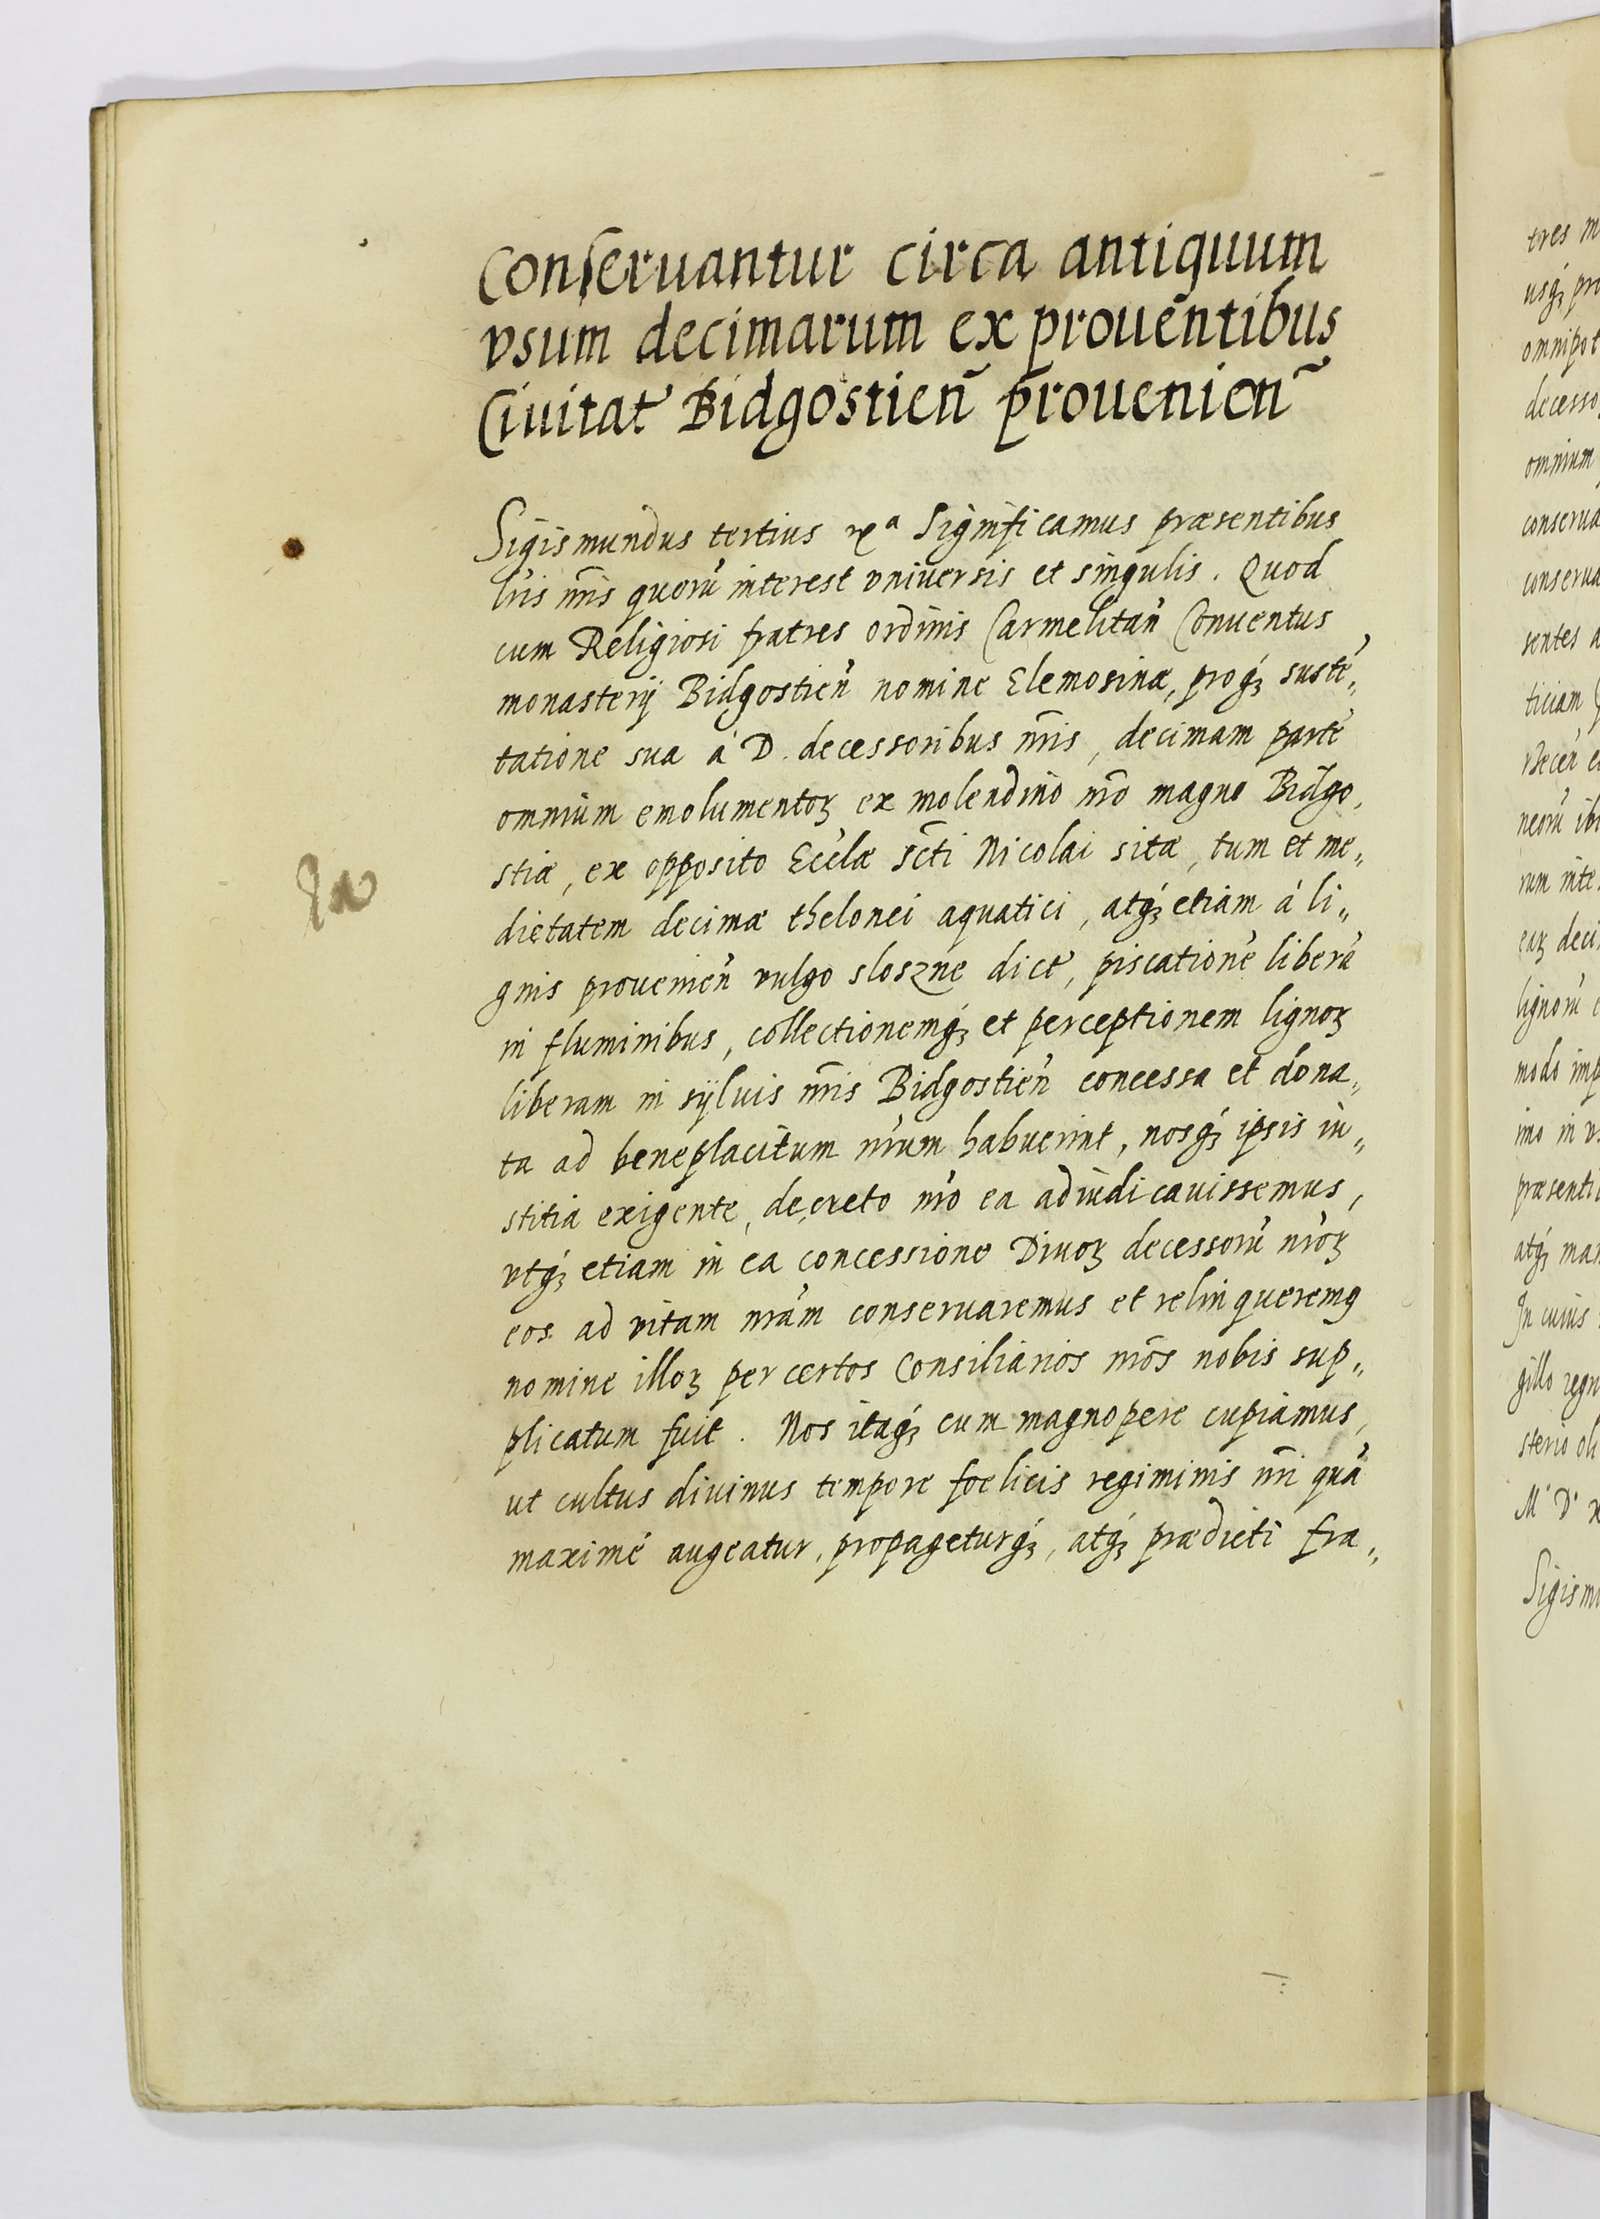 Conseruantur circa antiquum
vsum decimarum ex prouentibus
Ciuitat Bidgostien̄ prouenien̄
Sigismundus tertius rx^a Significamus præsentibus
lr̄is nr̄is quorū interest vniuersis et singulis. Quod
cum Religiosi fratres ordinis Carmelitan̄ Conuentus
monasterij Bidgostien̄ nomine Elemosinæ, proq́ꝫ sustē„
tatione sua á D. decessoribus nr̄is, decimam partē
omnium emolumentoꝝ ex molendino nr̄o magno Bidgo,
stiæ, ex opposito Eccl̄æ sc̄ti Nicolai sitæ, tum et me„
dietatem decimæ thelonei aquatici, atq́ꝫ etiam á li„
gnis prouenien̄ vulgo sloszne dict, piscationē liberā
in fluminibus, collectionemq́ꝫ et perceptionem lignoꝝ
liberam in sÿluis nr̄is Bidgostien̄ concessa et dona„
ta ad beneplacitum nr̄um habuerint, nosq́ꝫ ipsis iu„
stitia exigente, decreto nr̄o ea adiudicauissemus,
vtq́ꝫ etiam in ea concessione Diuoꝝ decessorū nr̄oꝝ
eos ad vitam nr̄am conseruaremus et relinqueremꝯ
nomine illoꝝ per certos Consiliarios nr̄os nobis sup„
plicatum fuit. Nos itaq́ꝫ cum magnopere cupiamus,
ut cultus diuinus tempore fœlicis regiminis nr̄i quā
maximé augeatur, propageturq́ꝫ, atq́ꝫ prædicti fra„
tres
usq́ꝫ
omnipot
decesso
omnium
conserua
conserua
sentes
ticiam
neorū
rum inte
eaꝝ deci
lignorū
modo imp
imo in
præsenti
atq́ꝫ man
In cuius
gillo regn
sterio
M. D.
Sigismu